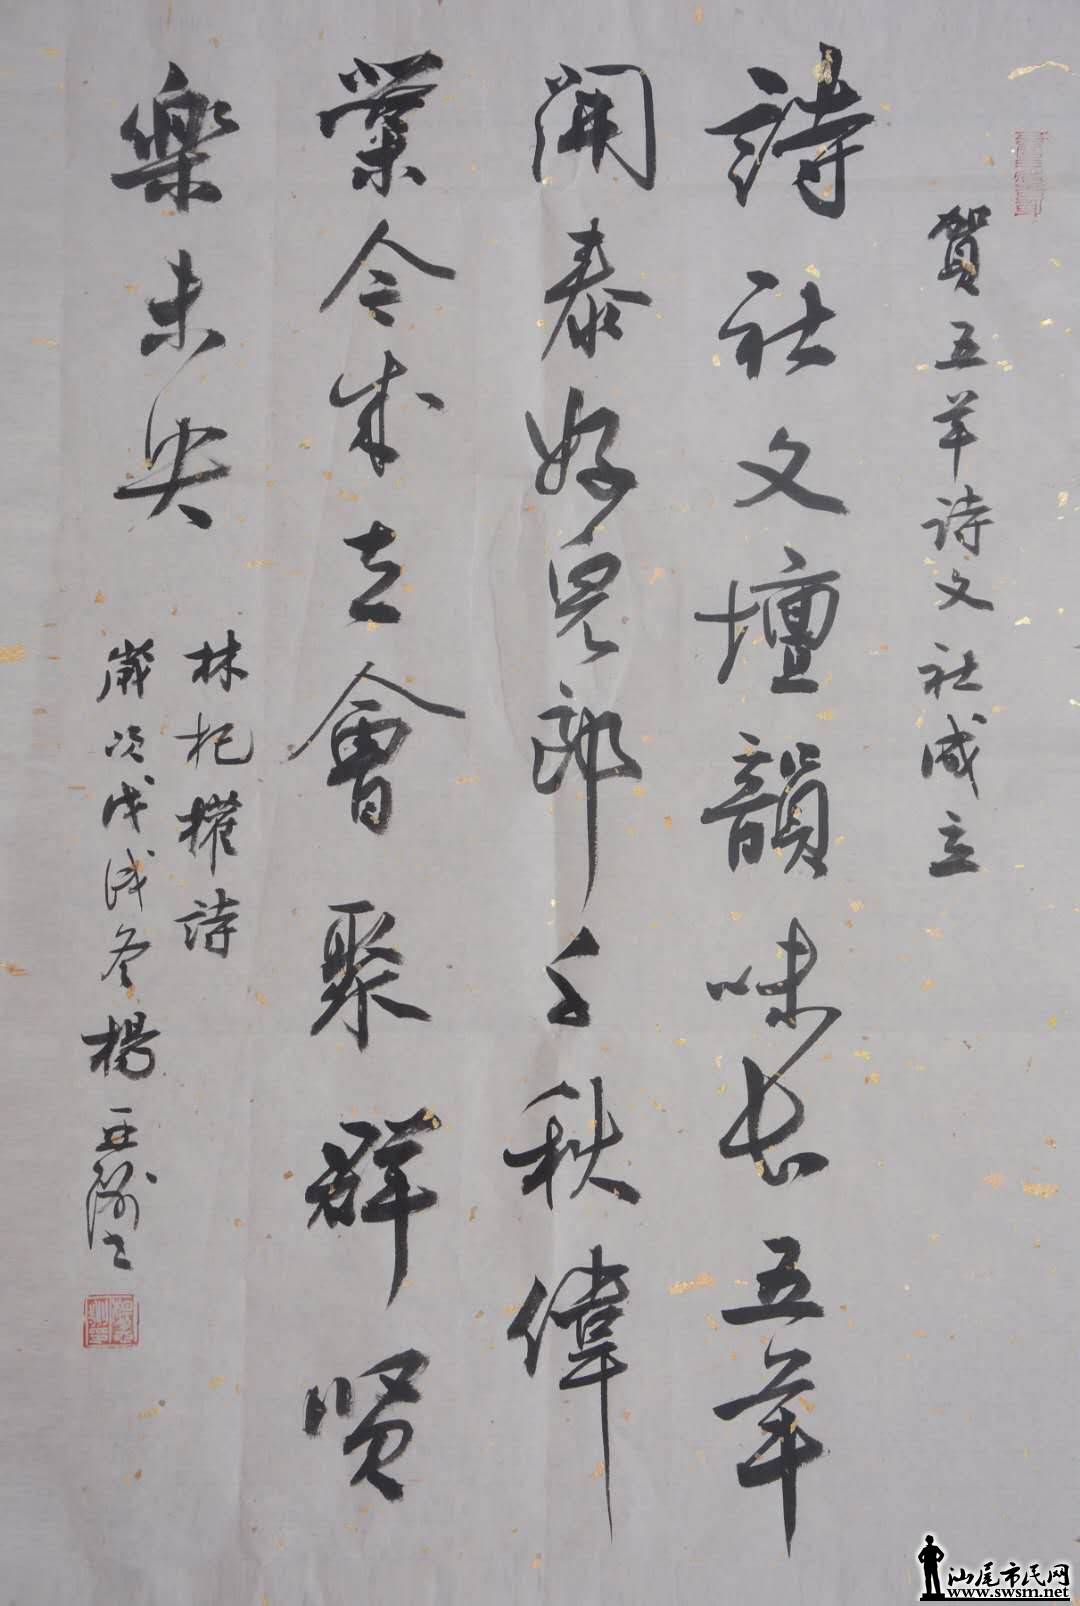 賀五羊诗文社成立
詩社文壇韻味长五羊
開泰好兒郎千秋偉
業今成立會聚群贤
樂未央
林杞權詩
歲次戊戌冬楊亚
汕尾市民网
www.swsm.net